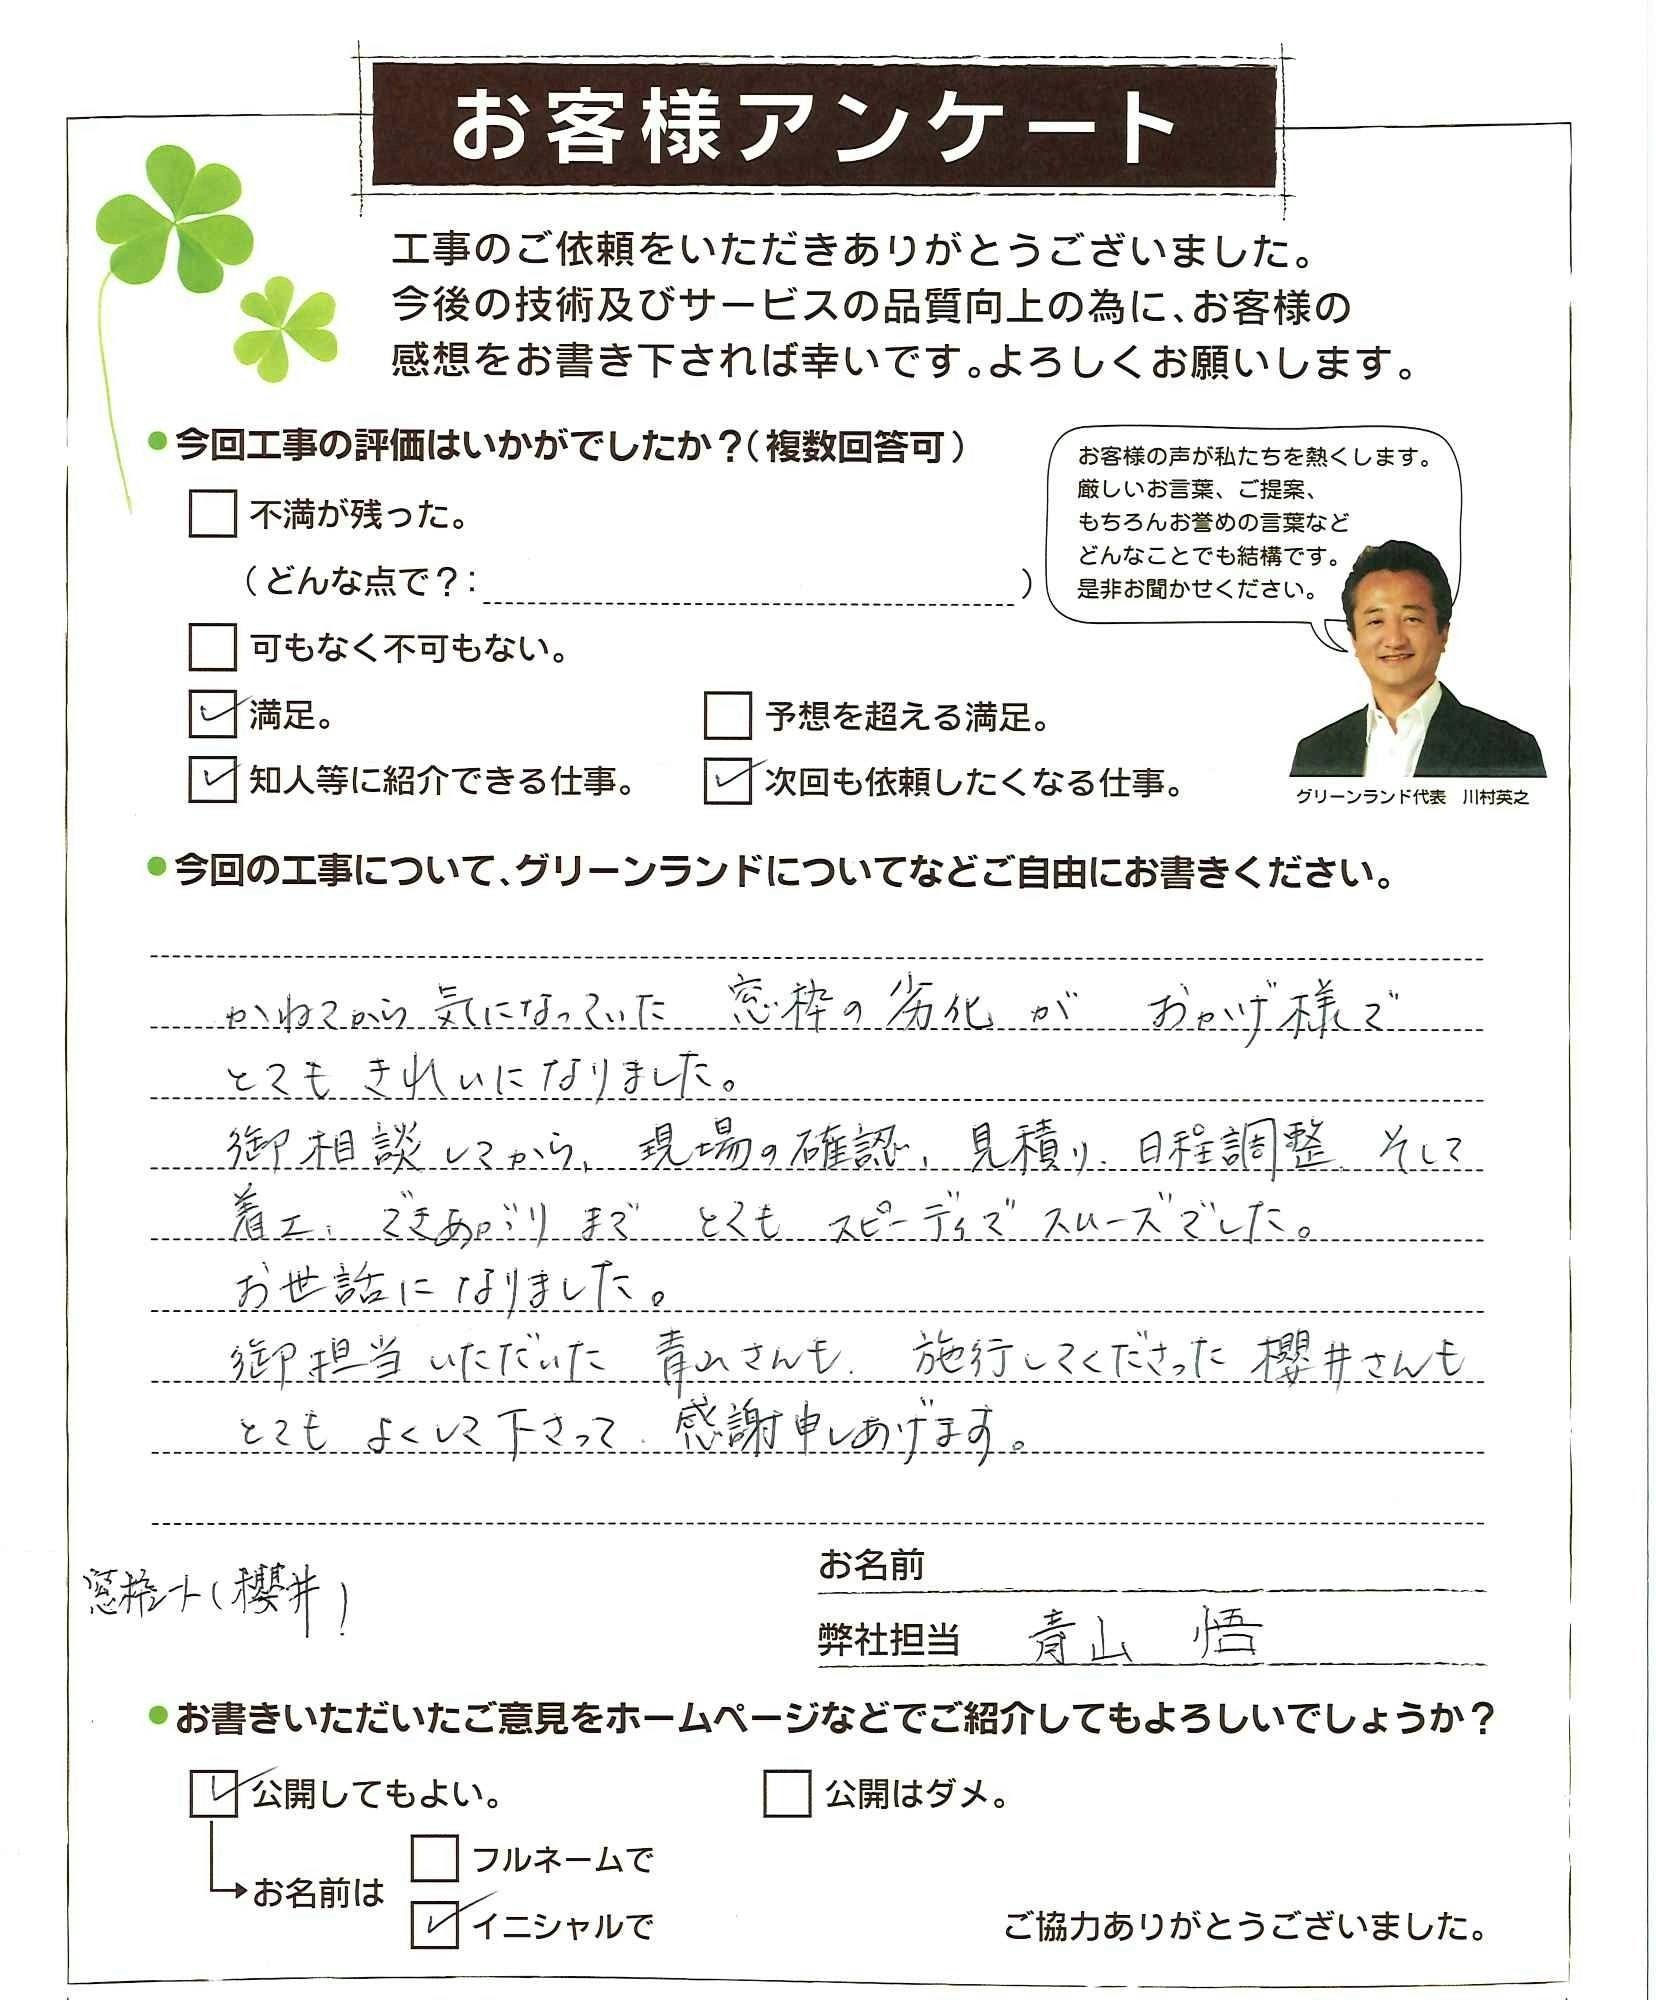 お客様アンケート
工事のご依頼をいただきありがとうございました。
今後の技術及びサービスの品質向上の為に、お客様の
感想をお書き下されば幸いです。よろしくお願いします。
今回工事の評価はいかがでしたか？（複数回答可）
不満が残った。
（どんな点で？：　）
可もなく不可もない。
満足。
予想を超える満足。
知人等に紹介できる仕事。
次回も依頼したくなる仕事。
お客様の声が私たちを熱くします。
厳しいお言葉、ご提案、
もちろんお誉めの言葉など
どんなことでも結構です。
是非お聞かせください。
グリーンランド代表　川村英之
今回の工事について、グリーンランドについてなどご自由にお書きください。
かねてから 気になっていた 窓枠の劣化 が おかげ様で
とても きれいになりました。
御相談してから、現場の確認、見積り、日程調整、そして
着工、できあがりまで とても スピーディで スムーズでした。
お世話になりました。
御担当いただいた 青山さんも、施行してくださった 櫻井さんも
とても よくして下さって、感謝申しあげます。
窓枠シート（櫻井）
お名前
弊社担当　青山　悟
お書きいただいたご意見をホームページなどでご紹介してもよろしいでしょうか？
公開してもよい。
公開はダメ。
お名前は
フルネームで
イニシャルで
ご協力ありがとうございました。